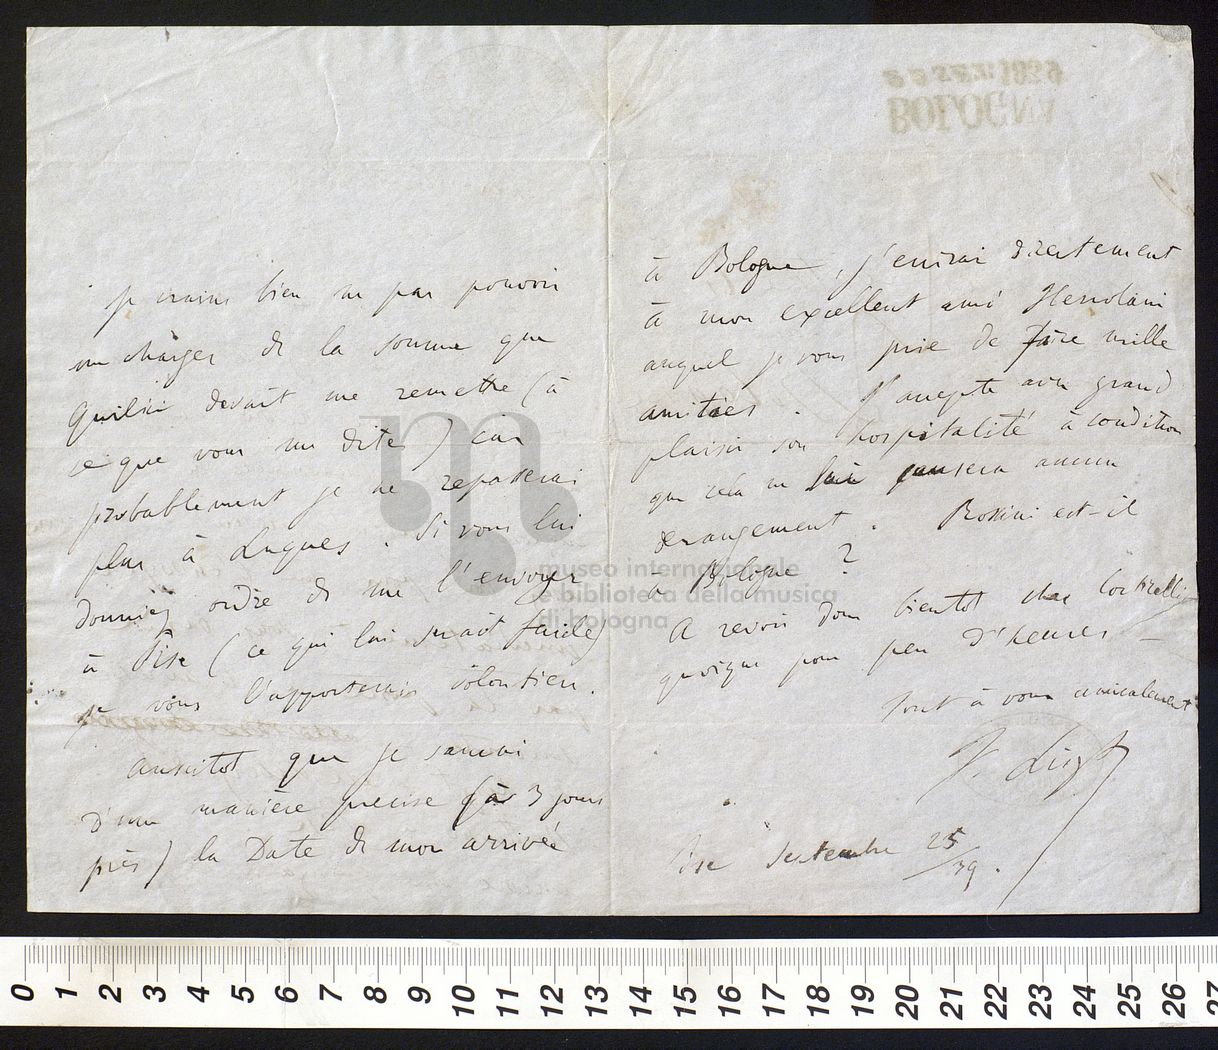 Je crains bien ne pas pouvoir
me charger de la somme que
Quilici devait me remettre (à
ce que vous me dites) car
probablement je ne repasserai
plus à Luques. Si vous lui
donniez ordre de me l'envoyer
à Pise (ce qui lui serait facile)
je vous l'apporterais volontiers.
Aussitot que je saurai
d'une manière precise (à 3 jours
près) la Date de mon arrivée
à Bologne, j'ecrirai directement
à mon excellent ami Hercolani
auquel je vous prie de faire mille
amitiés. J'accepte avec grand
plaisir son hospitalité à condition
que cela ne lui causera aucun
derangement. Rossini est-il
à Bologne?
A revoir donc bientot cher Corticelli
quoique pour peu d'heures —
tout à vous amicalement
F. Liszt
Pise Septembre 25/39.
BOLOGNA
museo internazionale
e biblioteca della musica
di bologna
0 1 2 3 4 5 6 7 8 9 10 11 12 13 14 15 16 17 18 19 20 21 22 23 24 25 26 27